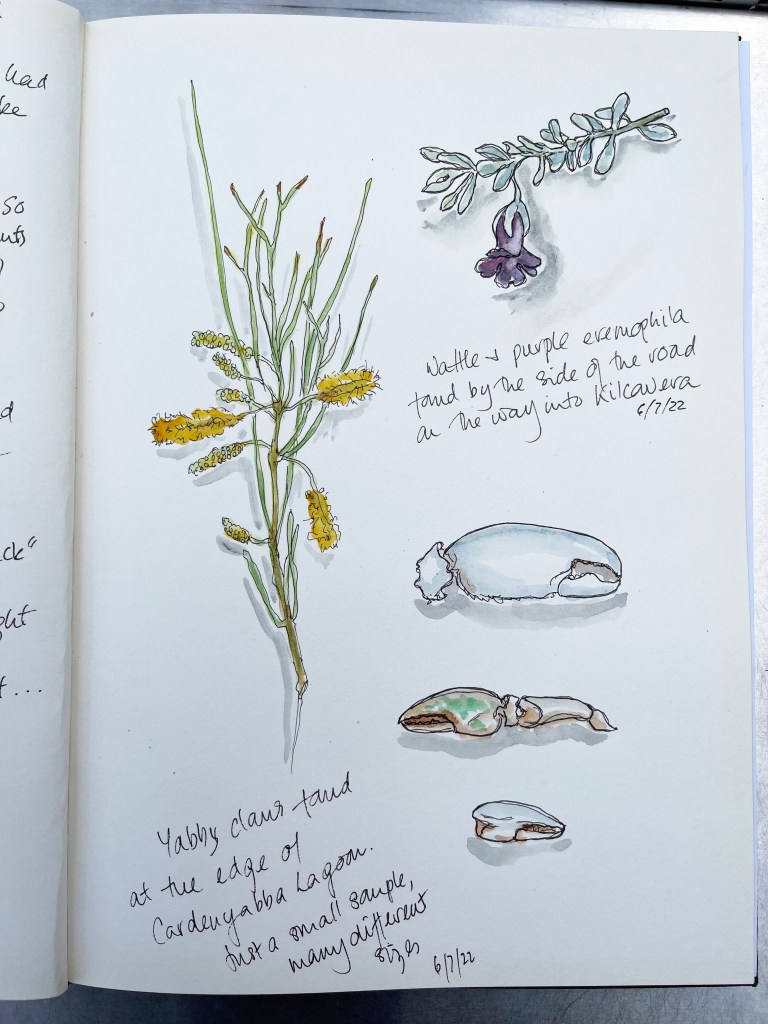 had
so
d
ck"
ght
t...
Wattle + purple eremophila
found by the side of the road
on the way into Kilcowera
6/7/22
Yabby claws found
at the edge of
Cardenyabba Lagoon.
Just a small sample,
many different
sizes
6/7/22